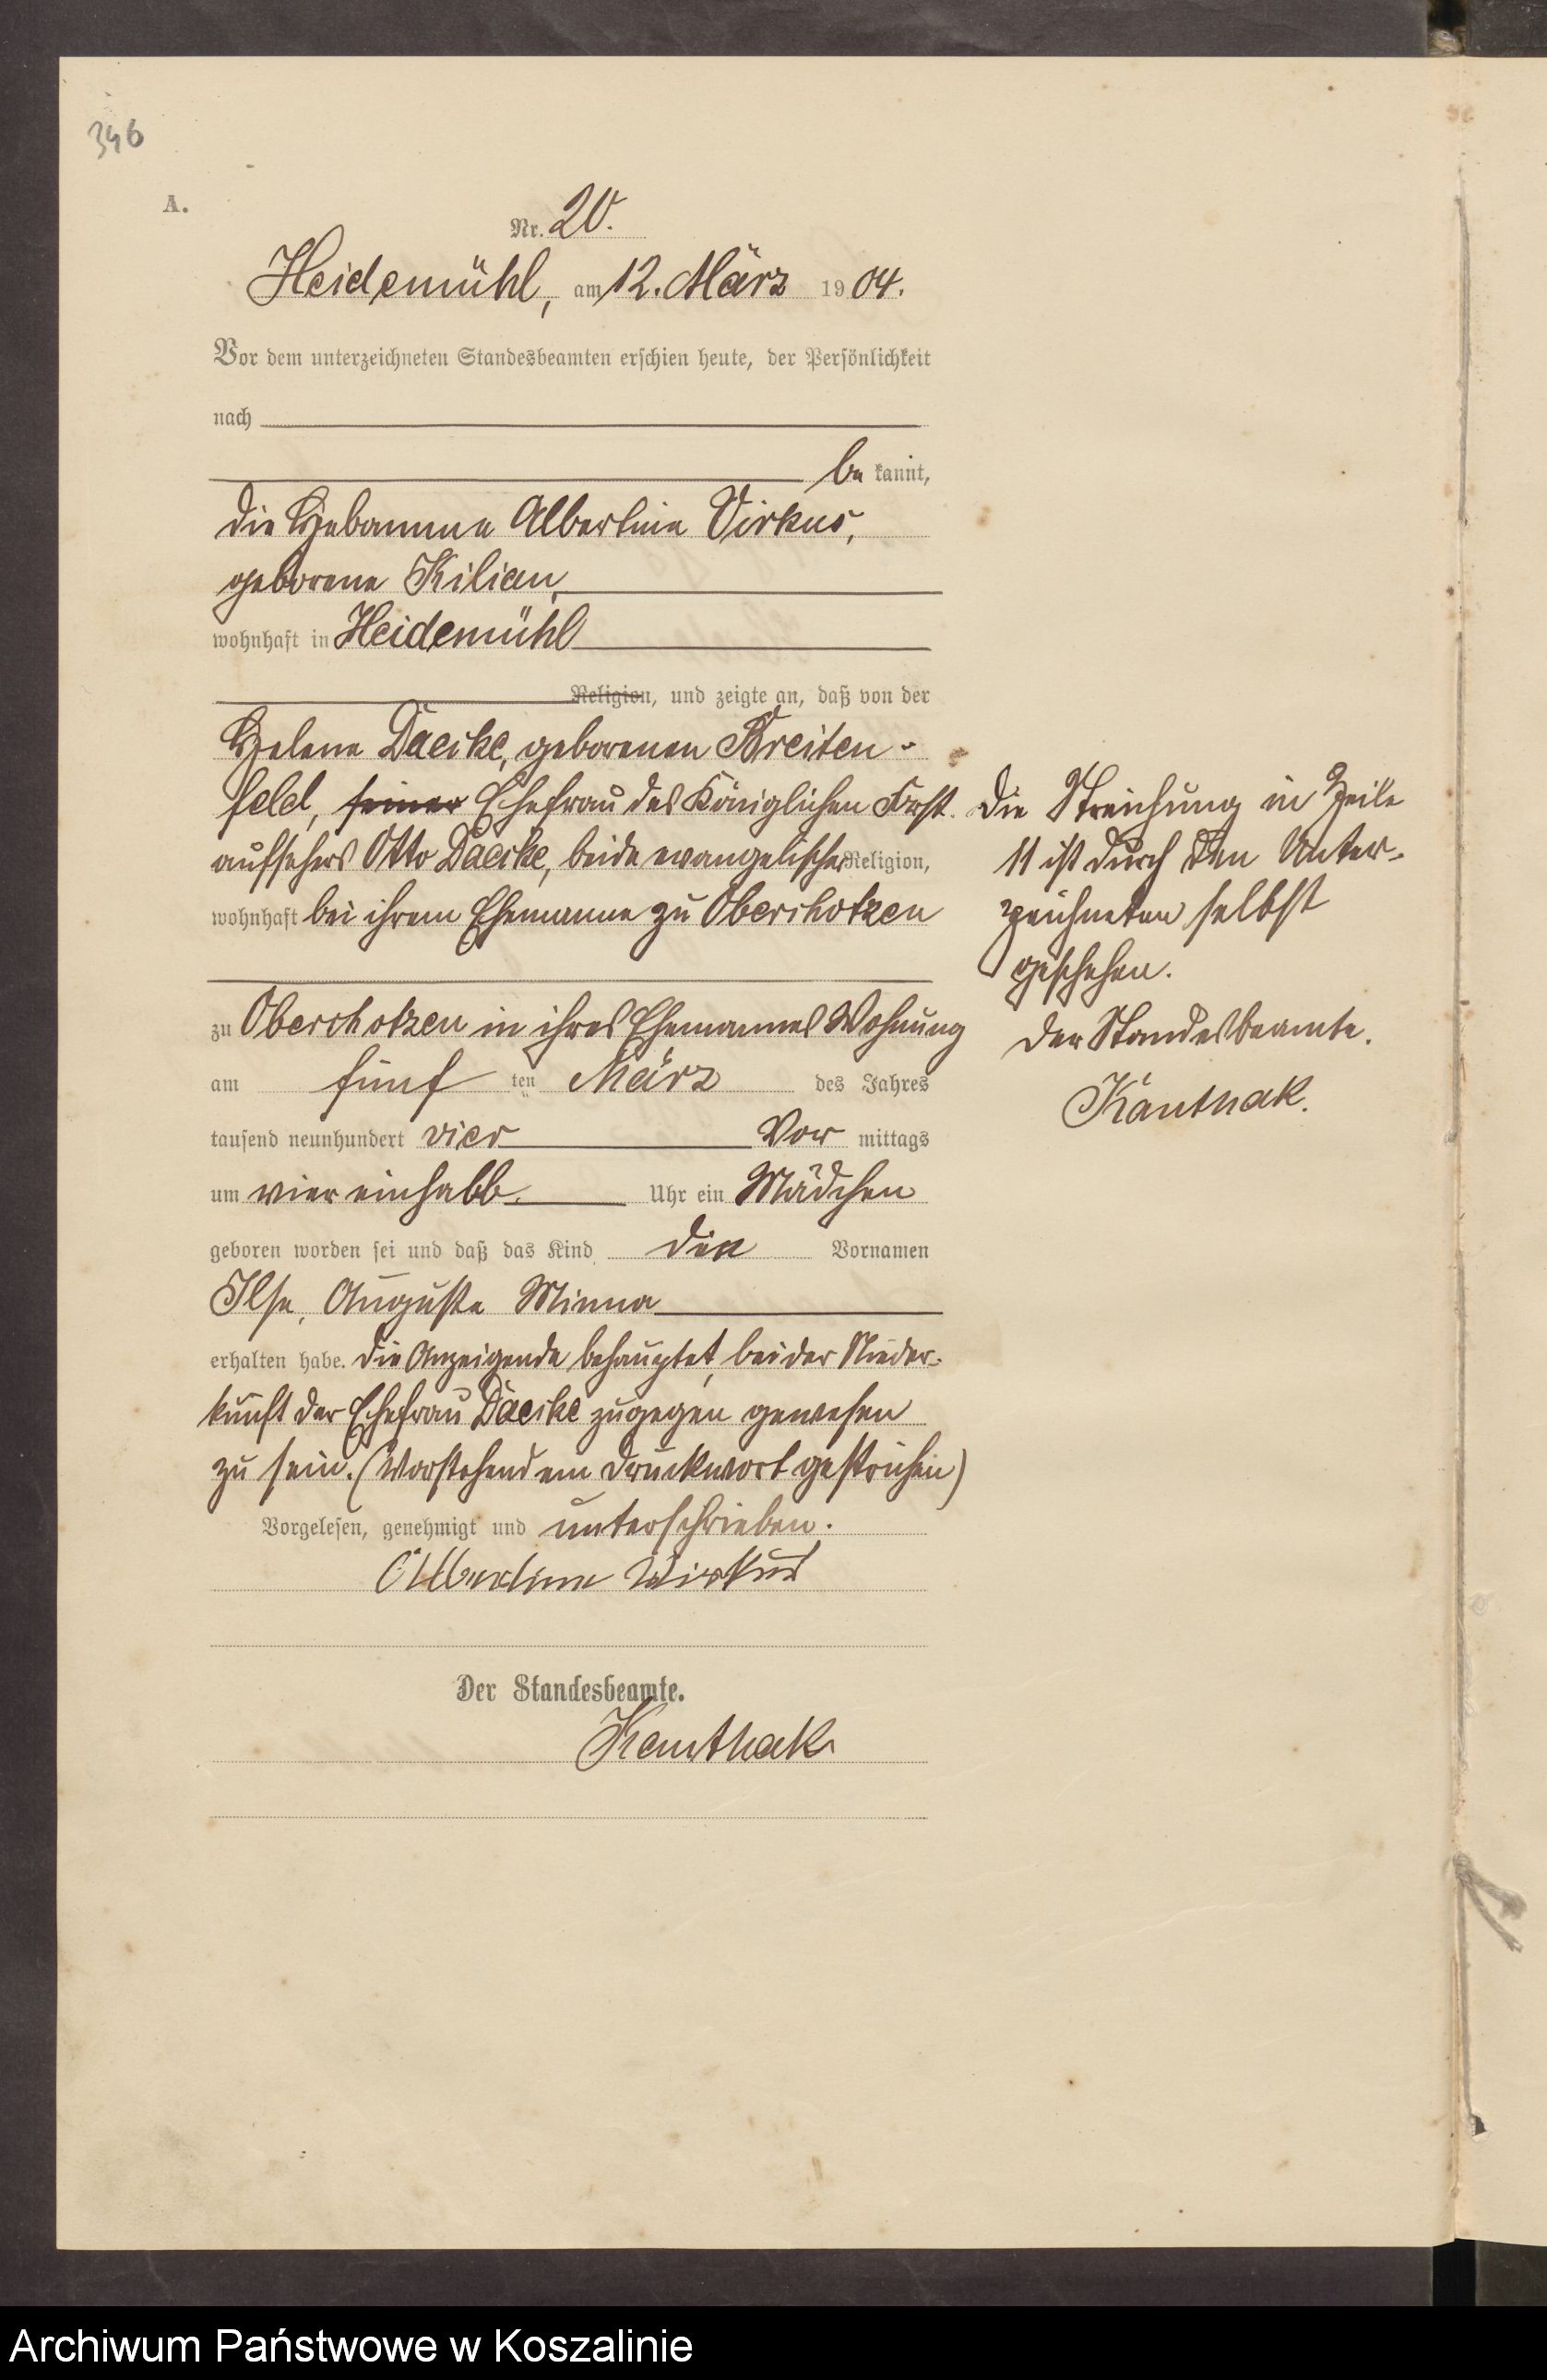 346
A.
Nr. 20.
Heidemühl, am 12. März 1904.
Vor dem unterzeichneten Standesbeamten erschien heute, der Persönlichkeit
nach
be kannt,
die Hebamme Albertine Virkus,
geborene Kilian,
wohnhaft in Heidemühl
Religion, und zeigte an, daß von der
Helene Daecke, geborenen Breiten-
feld, seiner Ehefrau des Königlichen Forst-
aufsehers Otto Daecke, beide evangelischer Religion,
wohnhaft bei ihrem Ehemanne zu Oberchotzen
zu Oberchotzen in ihres Ehemannes Wohnung
am fünf ten März des Jahres
tausend neunhundert vier Vor mittags
um vier einhalb Uhr ein Mädchen
geboren worden sei und daß das Kind die Vornamen
Ilse, Auguste Minna
erhalten habe. Die Anzeigende behauptet, bei der Nieder-
kunft der Ehefrau Daecke zugegen gewesen
zu sein. (Vorstehend ein Druckwort gestrichen)
Vorgelesen, genehmigt und unterschrieben.
Albertine Wirkus
Der Standesbeamte.
Kanthak
Die Streichung in Zeile
11 ist durch den Unter-
zeichneten selbst
geschehen.
Der Standesbeamte.
Kanthak.
Archiwum Państwowe w Koszalinie